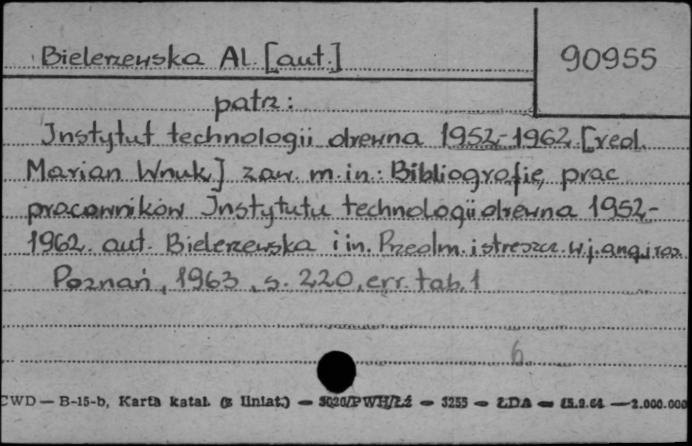 Bielerzewska Al. [aut.]
90955
patrz:
Instytut technologii drewna 1952-1962 [red.
Marian Wnuk] zaw. m. in.: Bibliografię prac
pracowników Instytutu technologii drewna 1952-
1962. aut. Bielerzewska i in. Przedm. i streszcz. w j. ang. i ros.
Poznań, 1963, s. 220, err. tab. 1
6
CWD — B-15-b, Karta katal. (z liniat.) — 3020/PWH/Łź — 3255 — ŁDA — 2.000.000